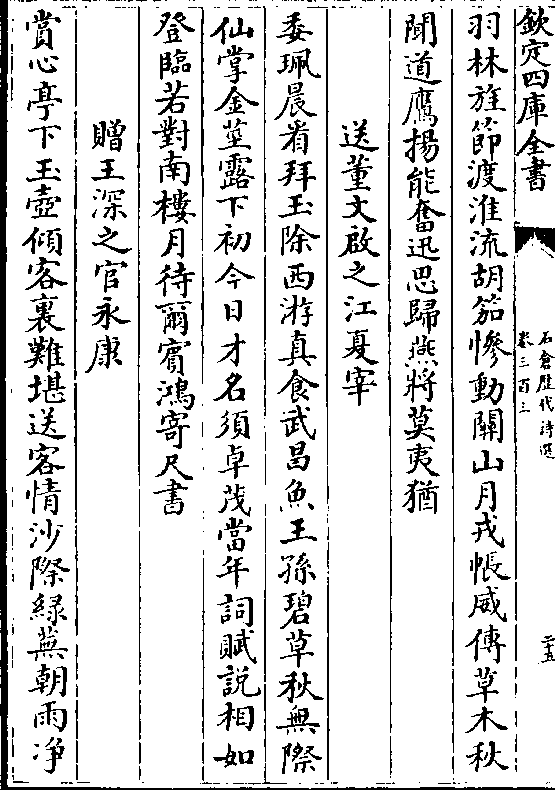 欽定四庫全書
石倉歷代詩選
卷三百三
二五
羽林旌節渡淮流胡笳慘動關山月戎帳威傳草木秋
聞道鷹揚能奮迅思歸燕將莫夷猶
送董文啟之江夏宰
委珮晨看拜玉除西游真食武昌魚王孫碧草秋無際
仙掌金莖露下初今日才名須卓茂當年詞賦説相如
登臨若對南樓月待爾賓鴻寄尺書
贈王深之官永康
賞心亭下玉壺傾客裏難堪送客情沙際緑蕪朝雨净